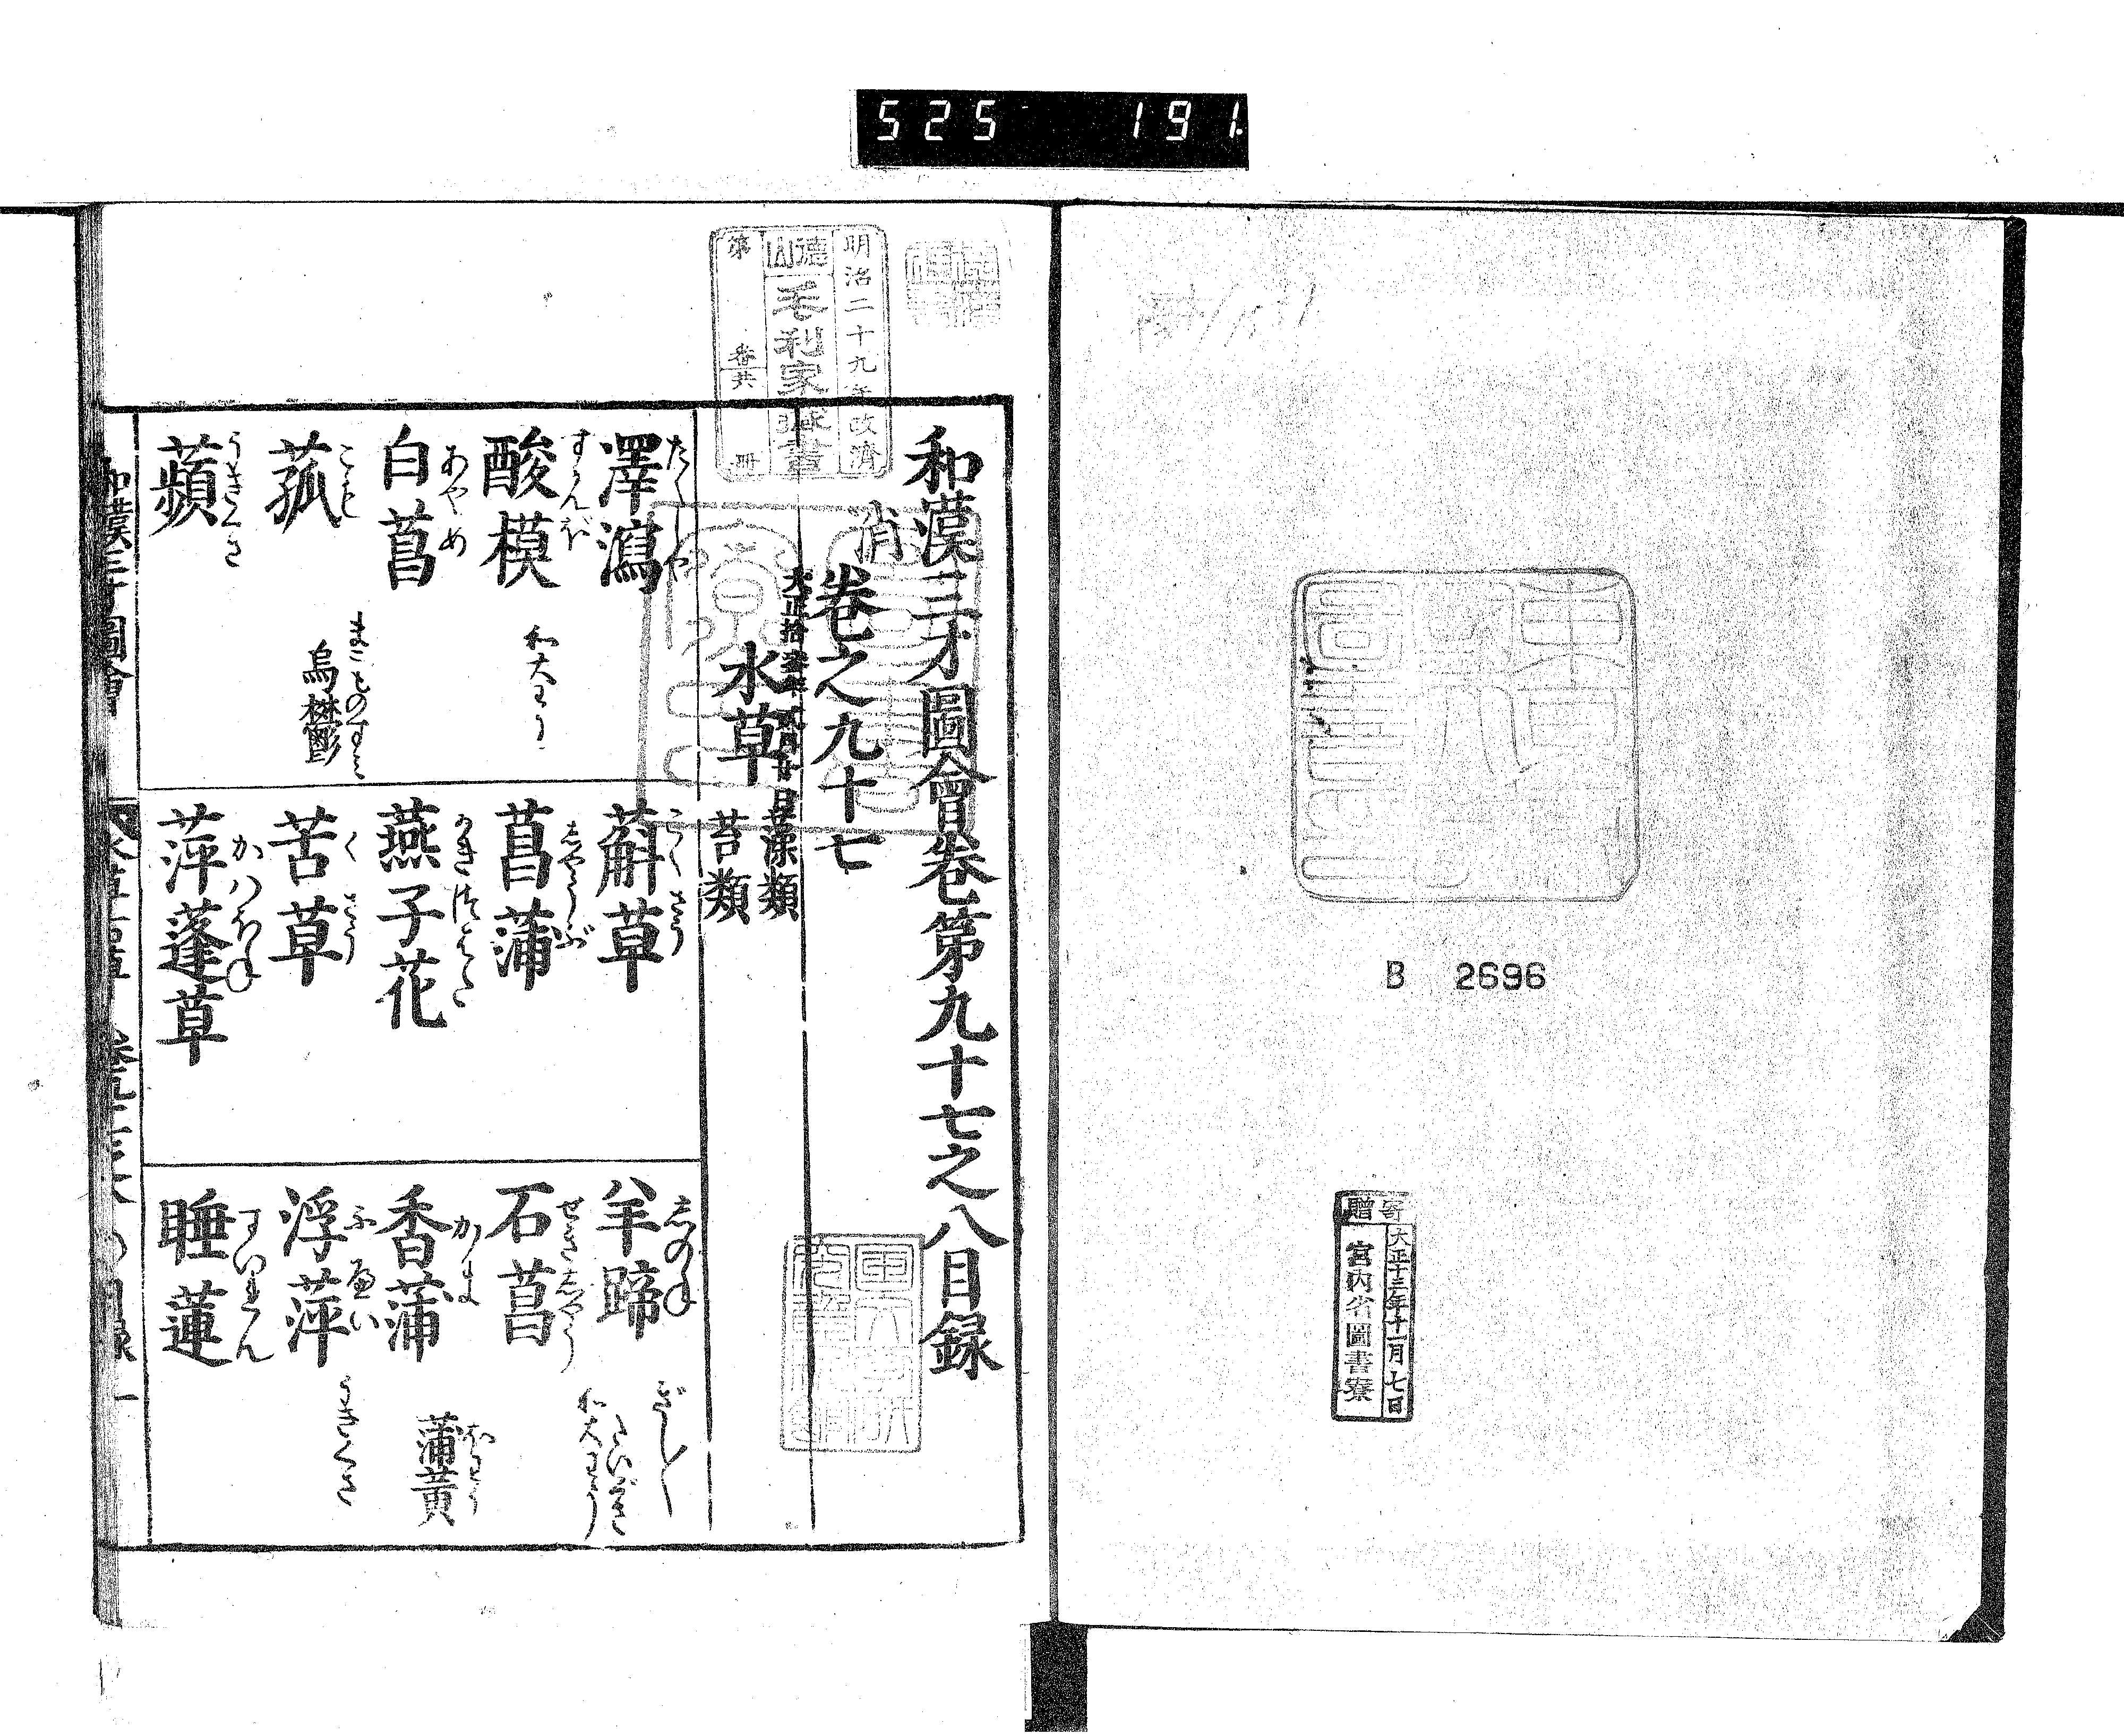 525 191
B 2696
寄贈
大正十三年十一月七日
宮内省圖書寮
明治二十九年改濟
德山
毛利家藏書
第 番共 冊
消
和漢三才圖會卷第九十七之八目録
卷之九十七
水草
藻類
苔類
澤瀉
酸模 すかんぽ
和大わう
白菖 あやめ
菰 こも
烏欝
蘋 うきくさ
蔛草 こくさう
菖蒲 しやうぶ
燕子花 かきつばた
苦草 くさう
萍蓬草 かハほね
羊蹄 しのね
ぎし〱
和大わう
石菖 せきしやう
香蒲 かま
蒲黄
浮萍 ふへい
うきくさ
睡蓮 すいれん